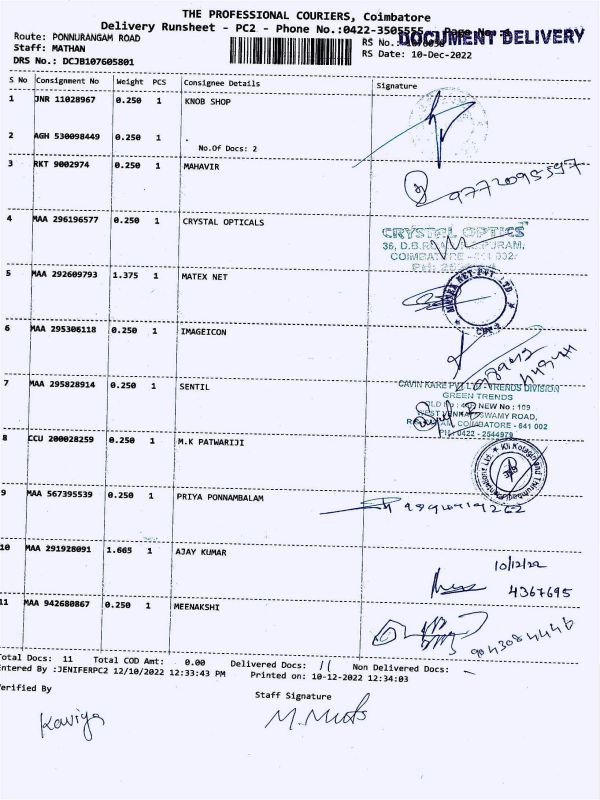 THE PROFESSIONAL COURIERS, Coimbatore
Delivery Runsheet - PC2 - Phone No.:0422-3505555
DOCUMENT DELIVERY
Route: PONNURANGAM ROAD
Staff: MATHAN
DRS No.: DCJB107605801
RS No.:
RS Date: 10-Dec-2022
S No Consignment No Weight PCS Consignee Details Signature
1 JNR 11028967 0.250 1 KNOB SHOP
2 AGH 530098449 0.250 1 .
No.Of Docs: 2
3 RKT 9002974 0.250 1 MAHAVIR
4 MAA 296196577 0.250 1 CRYSTAL OPTICALS
CRYSTAL OPTICS
36, D.B. PURAM,
COIMBATORE - 641 002
5 MAA 292609793 1.375 1 MATEX NET
NET PVT LTD
6 MAA 295306118 0.250 1 IMAGEICON
7 MAA 295828914 0.250 1 SENTIL
CAVIN KARE PVT LTD - TRENDS DIVISION
GREEN TRENDS
NEW No : 109
WEST SWAMY ROAD,
COIMBATORE - 641 002
PH : 0422 - 2544979
8 CCU 200028259 0.250 1 M.K PATWARIJI
9 MAA 567395539 0.250 1 PRIYA PONNAMBALAM
10 MAA 291928091 1.665 1 AJAY KUMAR
10/12/22
4367695
11 MAA 942680867 0.250 1 MEENAKSHI
9043084446
Total Docs: 11 Total COD Amt: 0.00 Delivered Docs: 11 Non Delivered Docs: -
Entered By :JENIFERPC2 12/10/2022 12:33:43 PM Printed on: 10-12-2022 12:34:03
Verified By
Staff Signature
Kaviya